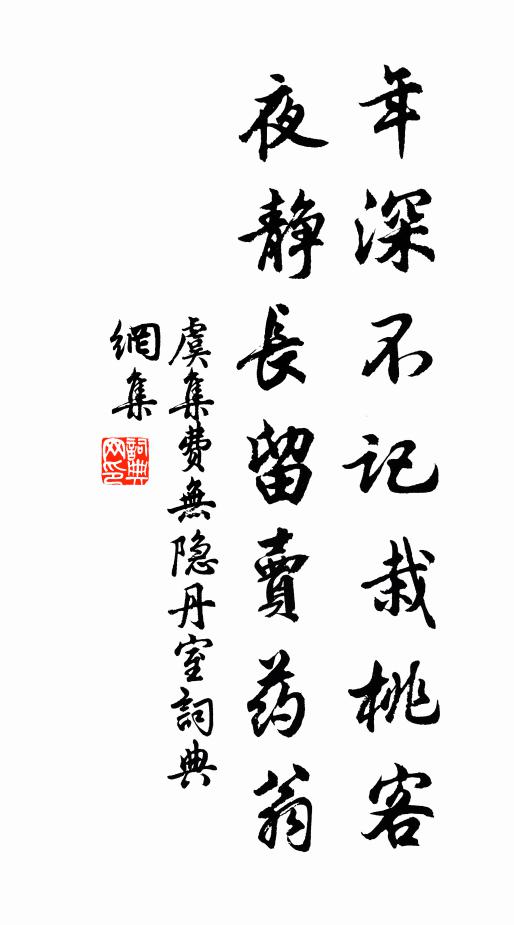 年深不记栽桃客
夜静長留賣药翁
虞集費無隐丹室詞典
網集
詞典
网印